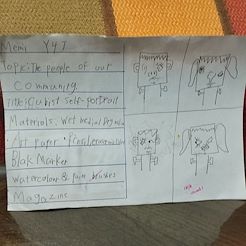 Memi Y4J
Topic: The people of our
Community.
Title: Cubist self-portrait
Materials: Wet medical
• Art Paper • Pencil
Blak Marker
Watercolour & paint brushes
Magazine